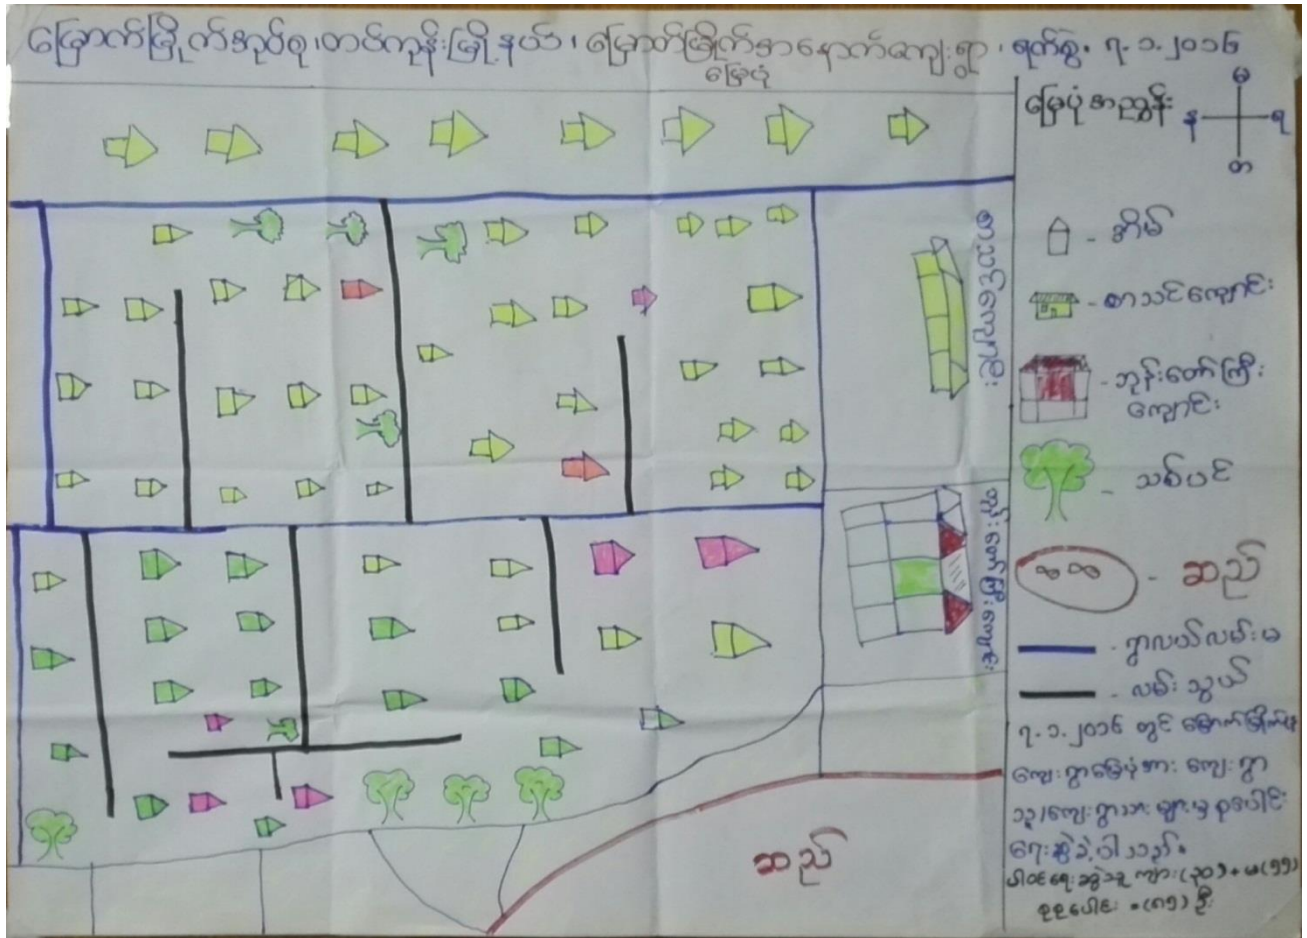 မြောက်မြိုက်အုပ်စု၊ တပ်ကုန်းမြို့နယ်၊ မြောက်မြိုက်အနောက်ကျေးရွာ၊ ရက်စွဲ. ၇.၁.၂၀၁၆
မြေပုံ
မြေပုံအညွှန်း
မ
န
ရ
တ
အိမ်
စာသင်ကျောင်း
စာသင်ကျောင်း
ဘုန်းတော်ကြီး
ကျောင်း
သစ်ပင်
ဘုန်းတော်ကြီးကျောင်း
ဆည်
ရွာလယ်လမ်းမ
လမ်းသွယ်
၇.၁.၂၀၁၆ တွင် မြောက်မြိုက်
ကျေးရွာမြေပုံအား ကျေးရွာ
သူ/ကျေးရွာသား များမှ စုပေါင်း
ရေးဆွဲခဲ့ပါသည်။
ပါဝင်ရေးဆွဲသူ ကျား(၃၀)+မ(၅၅)
စုစုပေါင်း =(၈၅) ဦး
ဆည်